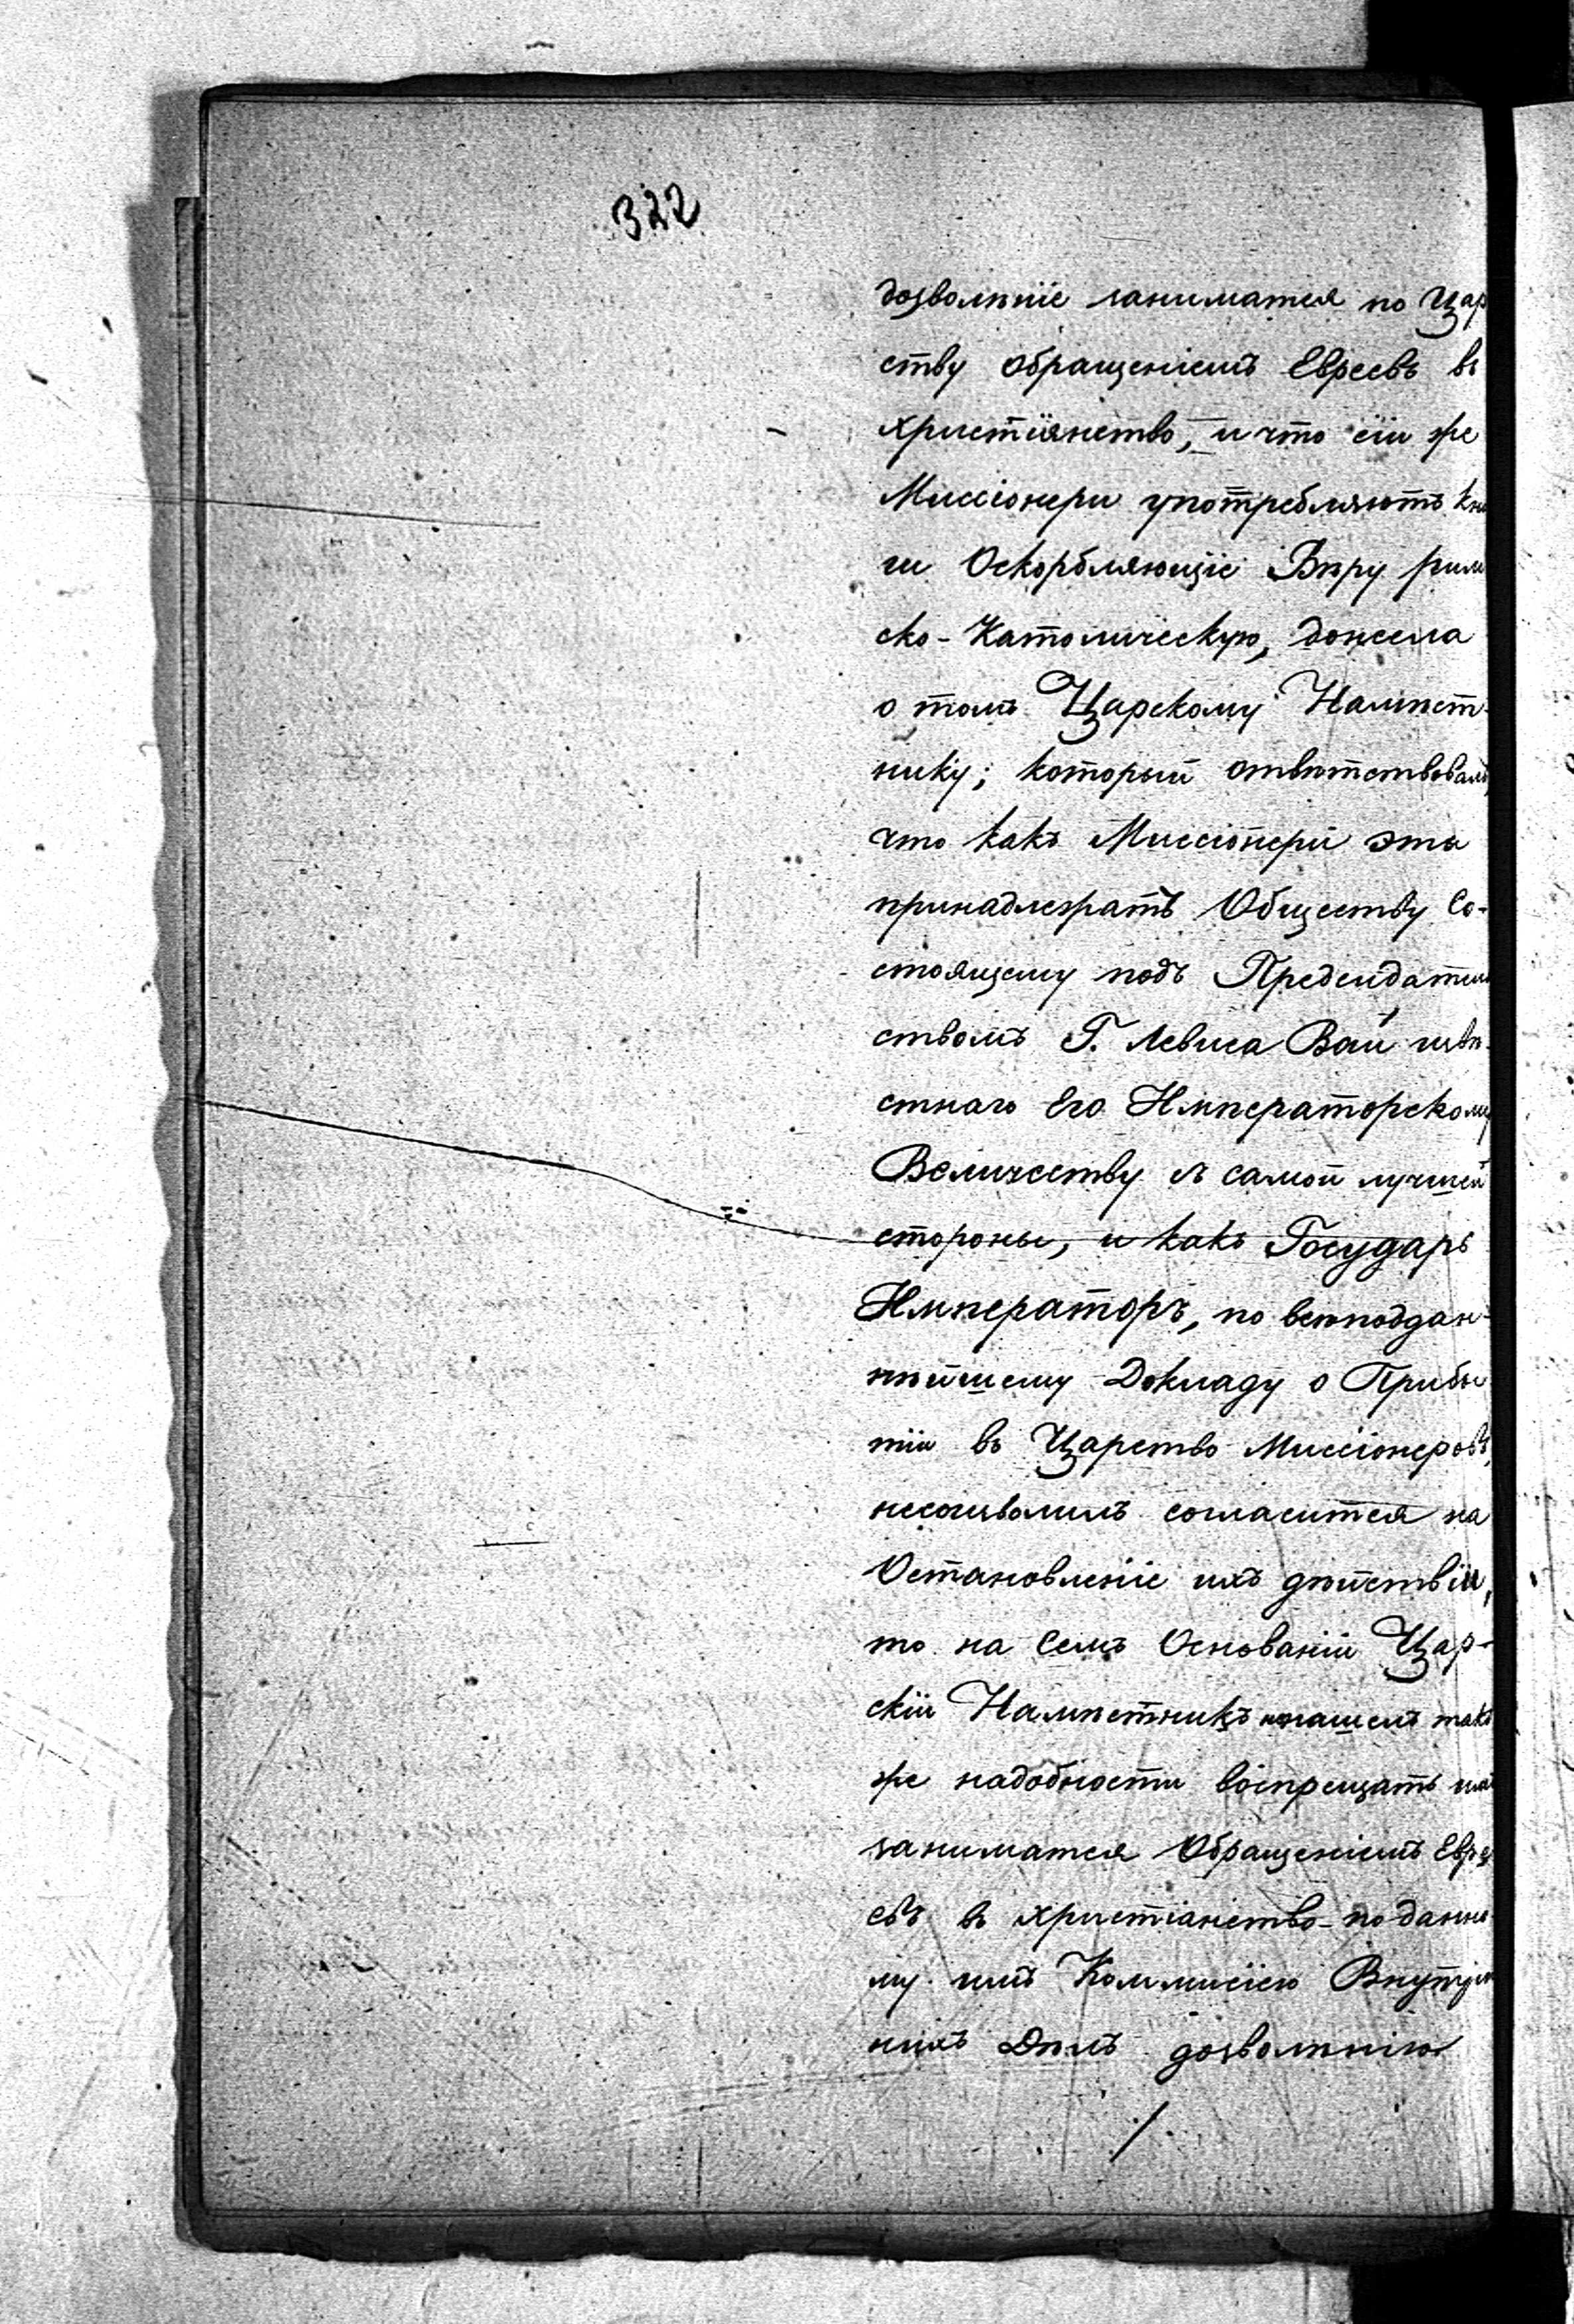 322
дозволѣніе заниматся по Цар
ству обращеніемъ Евреевъ въ
христіянство, и что сіи же
Миссіонери употребляютъ кни
ги Оскорбляющіе Вѣру рим
ско-Католическую, донесла
о томъ Царскому Намѣст-
нику; который отвѣтствовалъ,
что какъ Миссіонери эти
принадлежатъ Обществу Со-
стоящему подъ Председатель
ствомъ Г. Левиса Вай извѣ-
стнаго Его Императорскому
Величеству съ самой лучшей
стороны, и какъ Государь
Императоръ, по всеподдан-
нѣйшему Докладу о Прибы
тіи въ Царство Миссіонеровъ,
несоизволилъ согласится на
Остановленіе ихъ дѣйствій,
то на Семъ Основаніи Цар-
скій Намѣстникъ ненашелъ так
же надобности воспрещать имъ
заниматся Обращеніемъ Евре
евъ въ христіанство по данно
му имъ Коммисіею Внутрен
нихъ Дѣлъ дозволѣнію